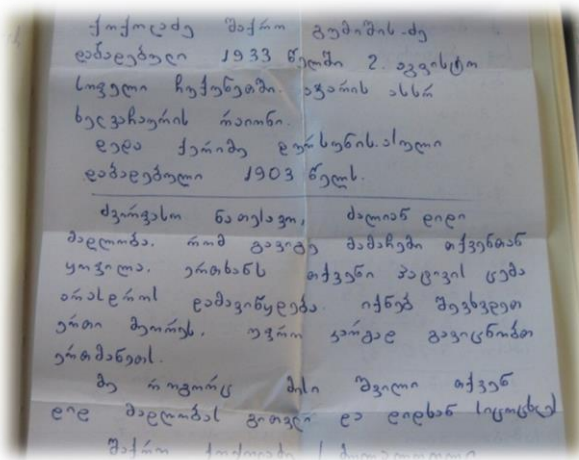 ქოქოლაძე შაქრო გუმიშის-ძე
დაბადებული 1933 წელში 2. აგვისტო
სოფელი ჩიქუნეთში. აჭარის ასსრ
ხელვაჩაურის რაიონი.
დედა ქერიმე დურსუნის. ასული
დაბადებული 1903 წელს.
ძვირფასო ნათესავო, ძალიან დიდი
მადლობა. რომ გავიგე მამაჩემი თქვენთან
ყოფილა. ერთხანს თქვენი პატივის ცემა
არასდროს დამავიწყდება. იქნებ შევხვდეთ
ერთი მეორეს. უფრო კარგად გავიცნობთ
ერთმანეთს.
მე როგორც მისი შვილი თქვენ
დიდ მადლობას გითვლი და დიდხან სიცოცხლე
შაქრო